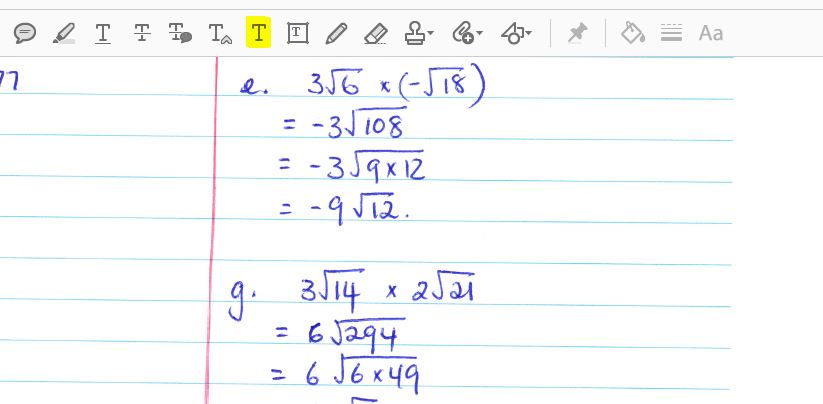 T T T T T T Aa
77
e. 3√6 × (-√18)
= -3√108
= -3√9×12
= -9√12.
g. 3√14 × 2√21
= 6√294
= 6√6×49